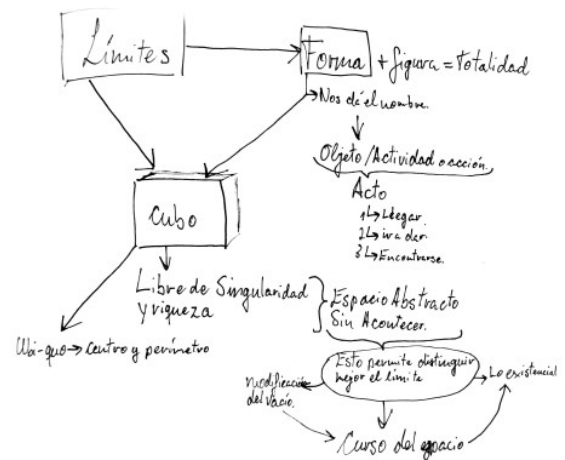 Límites
Forma + figura = Totalidad
Nos dá el nombre.
Objeto / Actividad o acción.
Acto
1 Llegar
2 ir a dar.
3 Encontrarse.
Cubo
Libre de Singularidad
y riqueza
Espacio Abstracto
Sin Acontecer.
Ubi-quo → Centro y perímetro
Esto permite distinguir
mejor el límite
modificación
del vacío.
Lo existencial
Curso del espacio